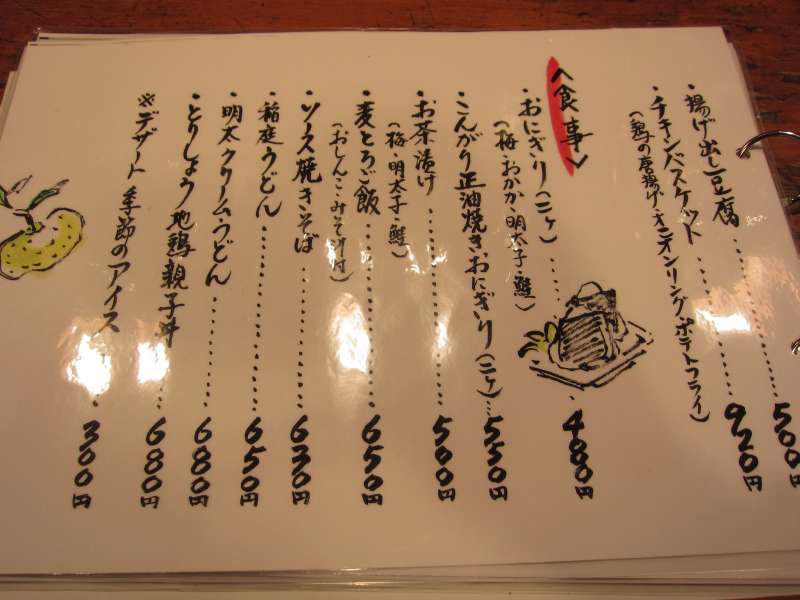 ・揚げ出し豆腐………500円
・チキンバスケット………920円
(鶏の唐揚げ・オニオンリング・ポテトフライ)
〈食事〉
・おにぎり(二ヶ)………480円
(梅・おかか・明太子・鮭)
・こんがり正油焼きおにぎり(二ヶ)…550円
・お茶漬け………500円
(梅・明太子・鮭)
・麦とろご飯………650円
(おしんこ・みそ汁付)
・ソース焼きそば………630円
・稲庭うどん………650円
・明太クリームうどん………680円
・とりしょう地鶏親子丼………680円
※デザート 季節のアイス………300円